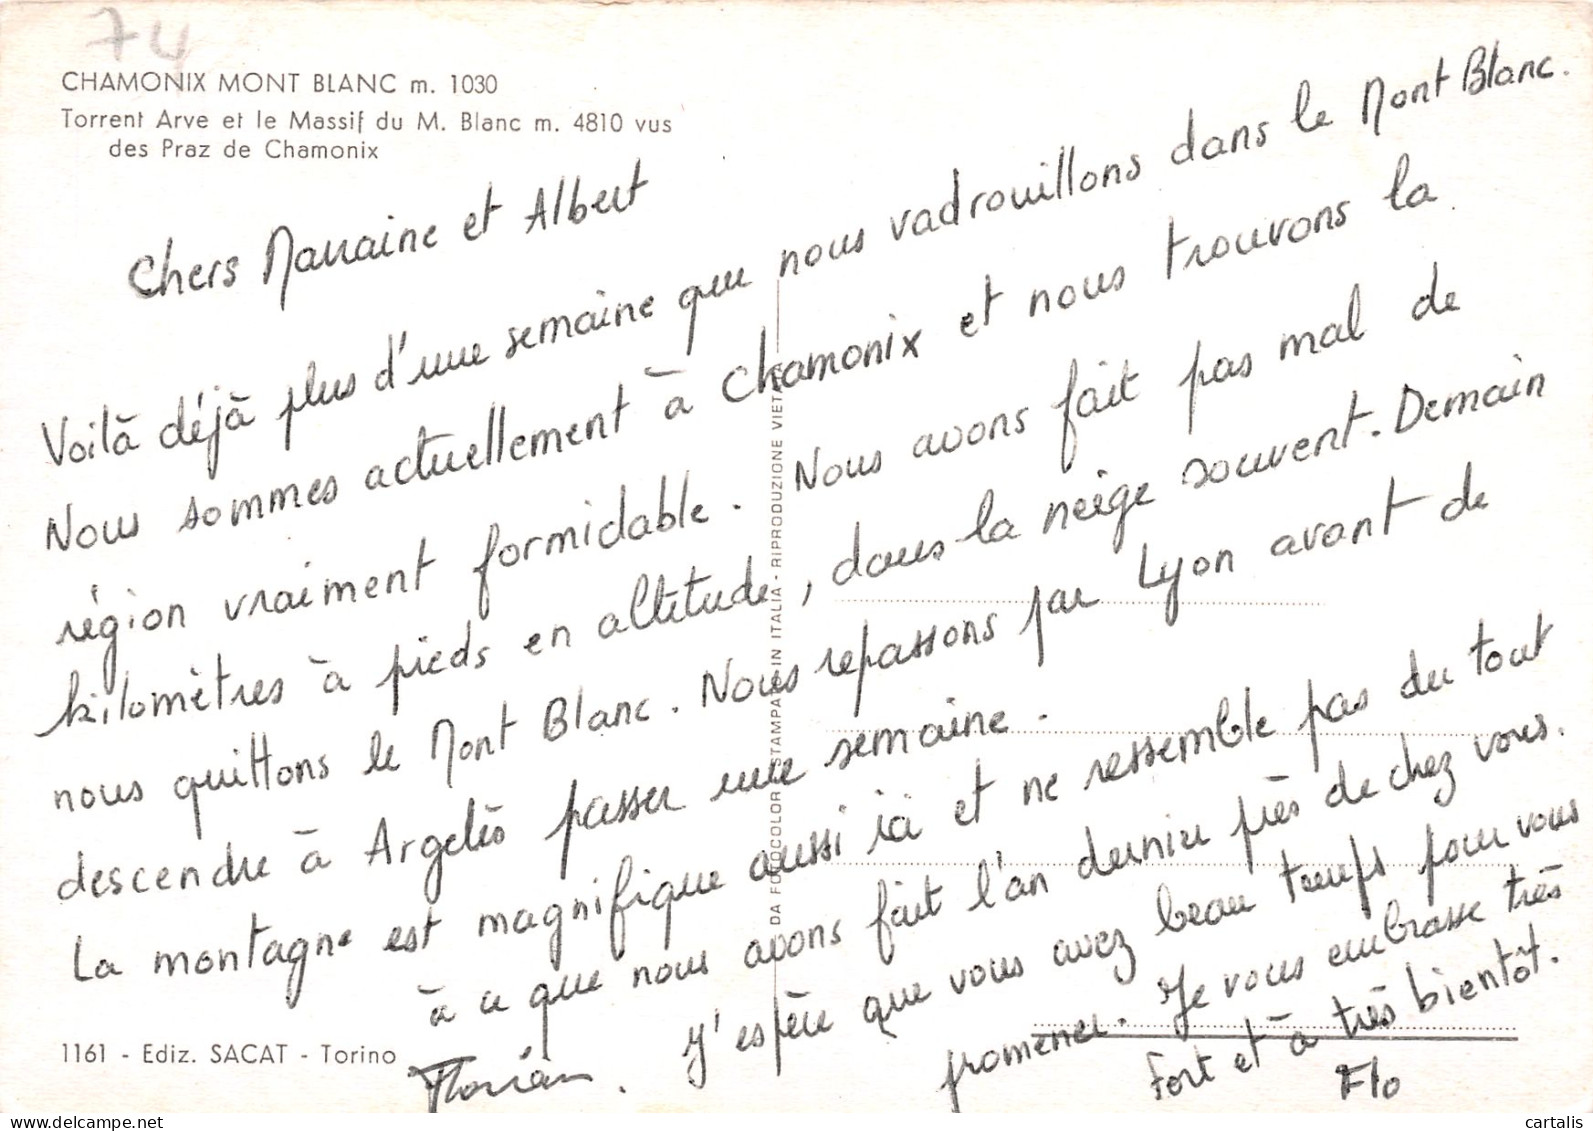 74
CHAMONIX MONT BLANC m. 1030
Torrent Arve et le Massif du M. Blanc m. 4810 vus
des Praz de Chamonix
Chers Marraine et Albert
Voilà déjà plus d'une semaine que nous vadrouillons dans le Mont Blanc.
Nous sommes actuellement à Chamonix et nous trouvons la
région vraiment formidable. Nous avons fait pas mal de
kilomètres à pieds en altitude, dans la neige souvent. Demain
nous quittons le Mont Blanc. Nous repassons par Lyon avant de
descendre à Argelès passer une semaine.
La montagne est magnifique aussi ici et ne ressemble pas du tout
à ce que nous avons fait l'an dernier près de chez vous.
J'espère que vous avez beau temps pour vous
promener. Je vous embrasse très
Fort et à très bientôt.
Flo
Florian.
1161 - Ediz. SACAT - Torino
DA FOTOCOLOR STAMPA IN ITALIA - RIPRODUZIONE VIET
www.cartalis.delcampe.net
cartalis